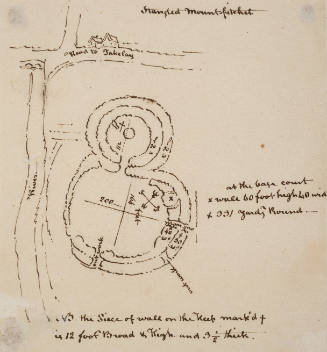 Stangled Mountsfitchet
Road to Takeley
River
200
at the base court
x wall 60 foot high 40 wid
& 331 yards Round
NB the Siece of wall on the Keep mark'd +
is 12 foot Broad & High and 3½ thick.